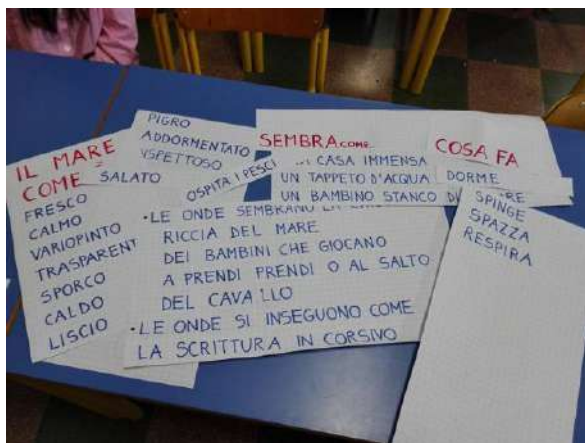 IL MARE
COME
SALATO
FRESCO
CALMO
VARIOPINTO
TRASPARENT
SPORCO
CALDO
LISCIO
PIGRO
ADDORMENTATO
OSPITA I PESCI
SEMBRA COME
CASA IMMENSA
UN TAPPETO D'ACQUA
UN BAMBINO STANCO
COSA FA
DORME
SPINGE
SPAZZA
RESPIRA
•LE ONDE SEMBRANO LA
RICCIA DEL MARE
DEI BAMBINI CHE GIOCANO
A PRENDI PRENDI O AL SALTO
DEL CAVALLO
•LE ONDE SI INSEGUONO COME
LA SCRITTURA IN CORSIVO